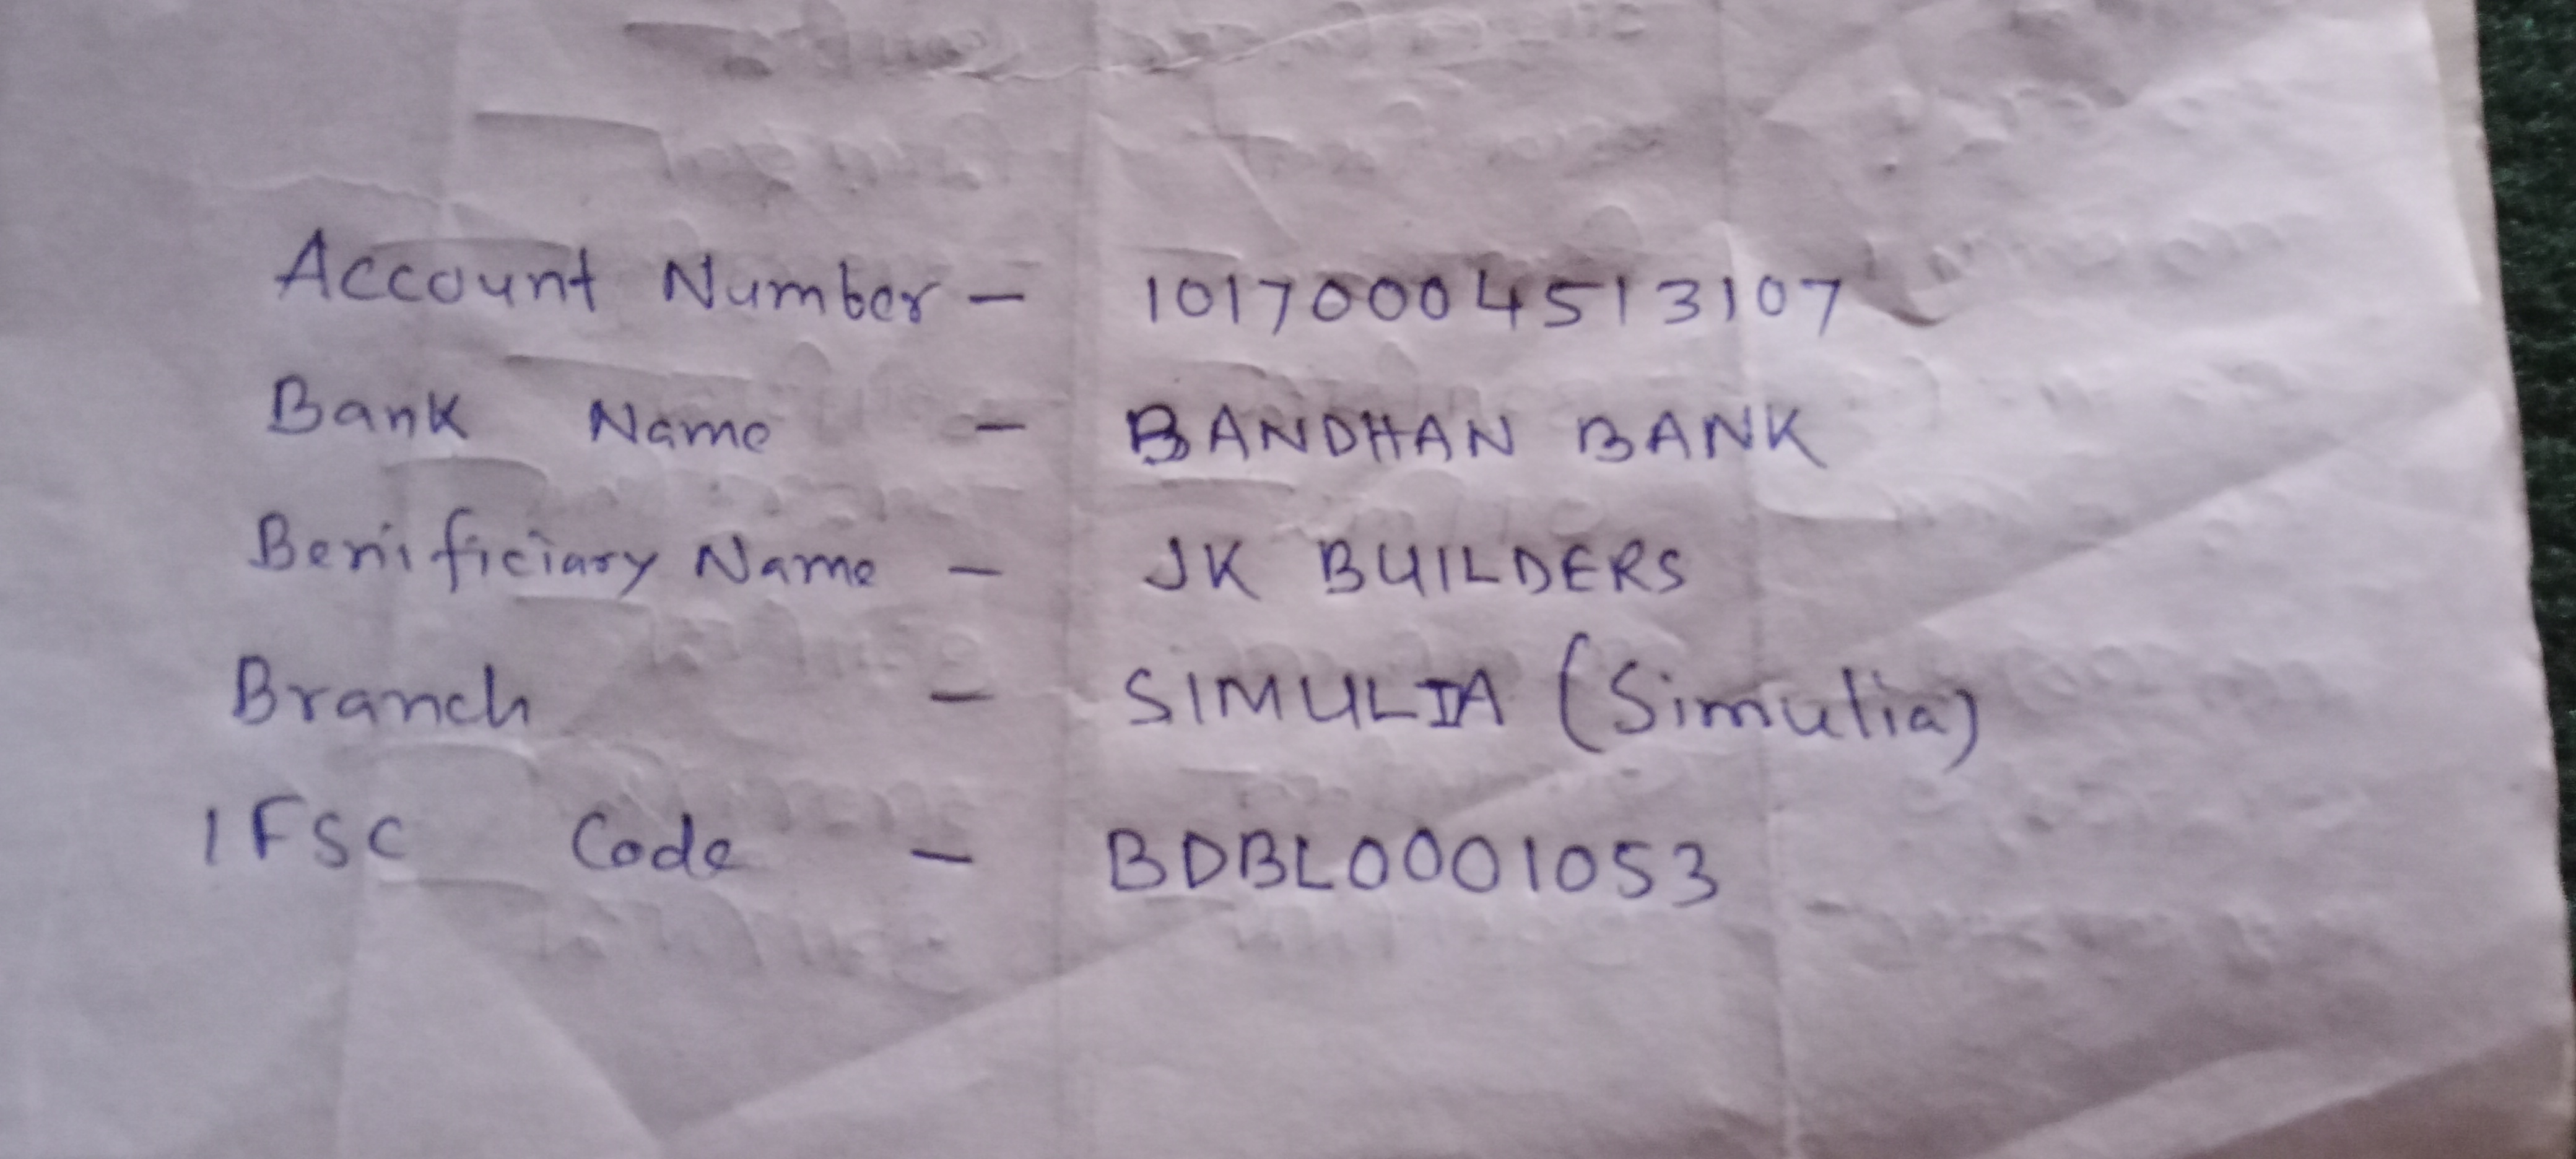 Account Number - 10170004513107
Bank Name - BANDHAN BANK
Benificiary Name - JK BUILDERS
Branch - SIMULIA (Simulia)
IFSC Code - BDBL0001053